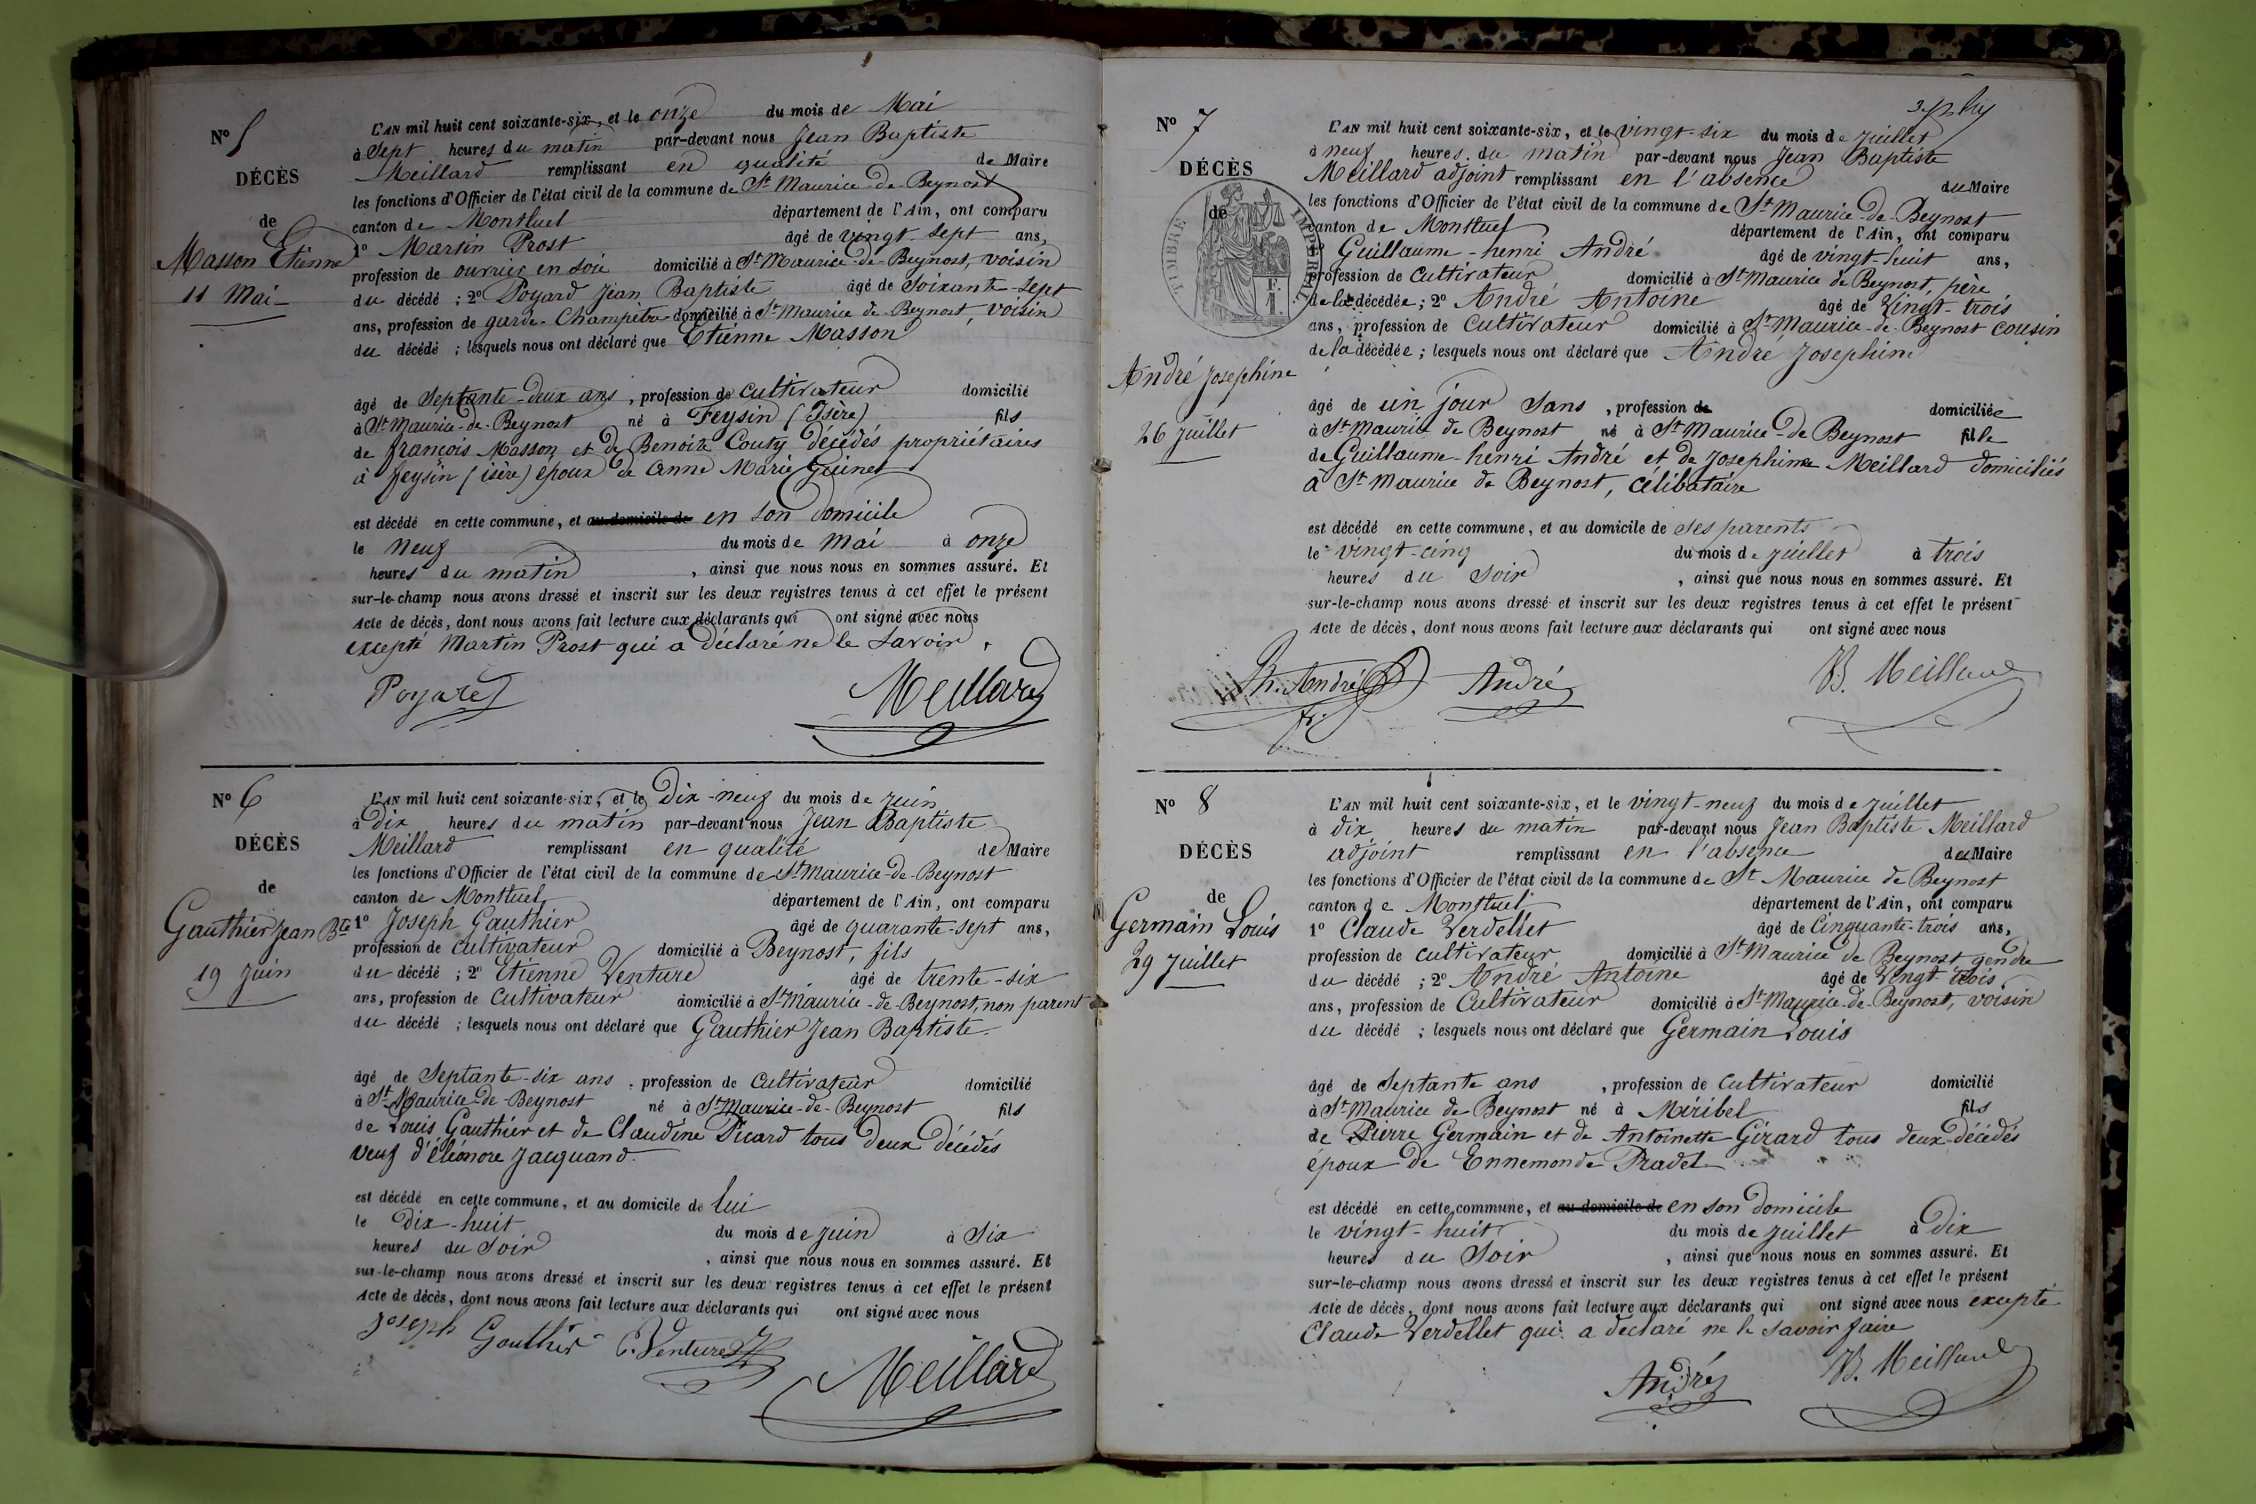 N° 5
DÉCÈS
de
Masson Etienne
11 Mai
L'AN mil huit cent soixante-six, et le onze du mois de Mai
à Sept heures du matin par-devant nous Jean Baptiste
Meillard remplissant en qualité de Maire
les fonctions d'Officier de l'état civil de la commune de St Maurice-de-Beynost
canton de Montluel département de l'Ain, ont comparu
1° Martin Prost âgé de vingt-sept ans,
profession de ouvrier en soie domicilié à St Maurice-de-Beynost, voisin
du décédé ; 2° Poyard Jean Baptiste âgé de Soixante-Sept
ans, profession de garde-Champêtre domicilié à St Maurice-de-Beynost, voisin
du décédé ; lesquels nous ont déclaré que Etienne Masson
âgé de Septante-deux ans, profession de cultivateur domicilié
à St Maurice-de-Beynost né à Feysin (Isère) fils
de françois Masson et de Benoiza Couty décédés propriétaires
à feysin (isère) époux de anne Marie Guinet
est décédé en cette commune, et au domicile de en son domicile
le neuf du mois de mai à onze
heures du matin, ainsi que nous nous en sommes assuré. Et
sur-le-champ nous avons dressé et inscrit sur les deux registres tenus à cet effet le présent
Acte de décès, dont nous avons fait lecture aux déclarants qui ont signé avec nous
excepté Martin Prost qui a déclaré ne le savoir.
Poyard Meillard
N° 6
DÉCÈS
de
Gauthier Jean Bte
19 Juin
L'AN mil huit cent soixante-six, et le Dix-neuf du mois de juin
à Dix heures du matin par-devant nous Jean Baptiste
Meillard remplissant en qualité de Maire
les fonctions d'Officier de l'état civil de la commune de St Maurice-de-Beynost
canton de Montluel département de l'Ain, ont comparu
1° Joseph Gauthier âgé de quarante-sept ans,
profession de cultivateur domicilié à Beynost, fils
du décédé ; 2° Etienne Venture âgé de trente-six
ans, profession de Cultivateur domicilié à St Maurice-de-Beynost, non parent
du décédé ; lesquels nous ont déclaré que Gauthier Jean Baptiste
âgé de Septante-six ans, profession de Cultivateur domicilié
à St Maurice-de-Beynost né à St Maurice-de-Beynost fils
de Louis Gauthier et de Claudine Picard tous deux décédés
veuf d'éléonore Jacquand
est décédé en cette commune, et au domicile de lui
le dix-huit du mois de juin à Six
heures du Soir, ainsi que nous nous en sommes assuré. Et
sur-le-champ nous avons dressé et inscrit sur les deux registres tenus à cet effet le présent
Acte de décès, dont nous avons fait lecture aux déclarants qui ont signé avec nous
joseph Gauthier E. Venture Meillard
N° 7
DÉCÈS
de
TIMBRE IMPÉRIAL
André Josephine
26 Juillet
L'AN mil huit cent soixante-six, et le vingt-six du mois de juillet
à neuf heures du matin par-devant nous Jean Baptiste
Meillard adjoint remplissant en l'absence du Maire
les fonctions d'Officier de l'état civil de la commune de St Maurice-de-Beynost
canton de Montluel département de l'Ain, ont comparu
1° Guillaume-henri André âgé de vingt-huit ans,
profession de cultivateur domicilié à St Maurice de Beynost, père
de la décédée ; 2° André Antoine âgé de Vingt-trois
ans, profession de Cultivateur domicilié à St Maurice-de-Beynost cousin
de la décédée ; lesquels nous ont déclaré que André Josephine
âgé de un jour Sans, profession de domiciliée
à St Maurice de Beynost né à St Maurice-de-Beynost fille
de Guillaume-henri André et de Josephine Meillard domiciliés
à St Maurice de Beynost, célibataire
est décédé en cette commune, et au domicile de ses parents
le vingt-cinq du mois de juillet à trois
heures du Soir, ainsi que nous nous en sommes assuré. Et
sur-le-champ nous avons dressé et inscrit sur les deux registres tenus à cet effet le présent
Acte de décès, dont nous avons fait lecture aux déclarants qui ont signé avec nous
h. André André B. Meillard
N° 8
DÉCÈS
de
Germain Louis
29 Juillet
L'AN mil huit cent soixante-six, et le vingt-neuf du mois de juillet
à dix heures du matin par-devant nous Jean Baptiste Meillard
adjoint remplissant en l'absence du Maire
les fonctions d'Officier de l'état civil de la commune de St Maurice de Beynost
canton de Montluel département de l'Ain, ont comparu
1° Claude Verdellet âgé de Cinquante-trois ans,
profession de cultivateur domicilié à St Maurice de Beynost gendre
du décédé ; 2° André Antoine âgé de Vingt-trois
ans, profession de Cultivateur domicilié à St Maurice-de-Beynost, voisin
du décédé ; lesquels nous ont déclaré que Germain Louis
âgé de Septante ans, profession de Cultivateur domicilié
à St Maurice de Beynost né à Miribel fils
de Pierre Germain et de Antoinette Girard tous deux décédés
époux de Ennemonde Pradel
est décédé en cette commune, et au domicile de en son domicile
le vingt-huit du mois de juillet à Dix
heures du Soir, ainsi que nous nous en sommes assuré. Et
sur-le-champ nous avons dressé et inscrit sur les deux registres tenus à cet effet le présent
Acte de décès, dont nous avons fait lecture aux déclarants qui ont signé avec nous excepté
Claude Verdellet qui a declaré ne le savoir faire
André B. Meillard